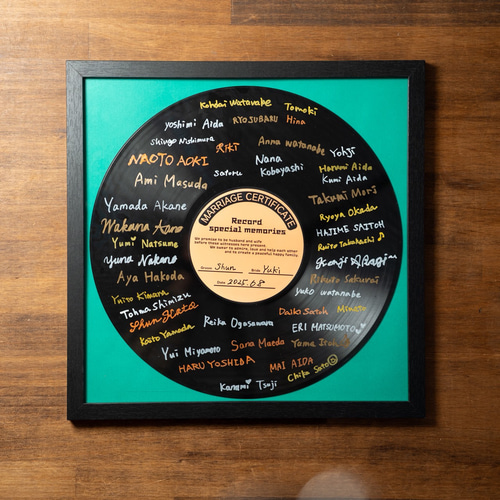 Kohdai Watanabe
Tomoki
yoshimi Aida
RYOSUBARU
Hina
Shingo Nishimura
RiKi
Anna watanabe
Yohji
NAOTO AOKI
Satoru
Nana
Kobayashi
Harumi Aida
Kumi Aida
Ami Masuda
Takumi Mori
Yamada Akane
MARRIAGE CERTIFICATE
Ryoya Okada
Wakana
Record
special memories
HAJIME SAITOH
Yumi Natsume
We promise to be husband and wife
before these witnesses here present.
We swear to admire, love and help each other
and to create a peaceful happy family.
Yuna Nakano
Kenji
Aya Hakoda
Groom Shun Bride Yuki
Rikuto Sakurai
Date 2025.6.8
Yuiro Kimura
yuko watanabe
Tohma Shimizu
Shun Kato
Daiki Satoh
Minato
Kaito Yamada
Reika Ogasawara
ERI MATSUMOTO
Yui Miyamoto
Sara Maeda
Yama
HARU YOSHIDA
MAI AIDA
Chika Sato
Kanami Tsuji